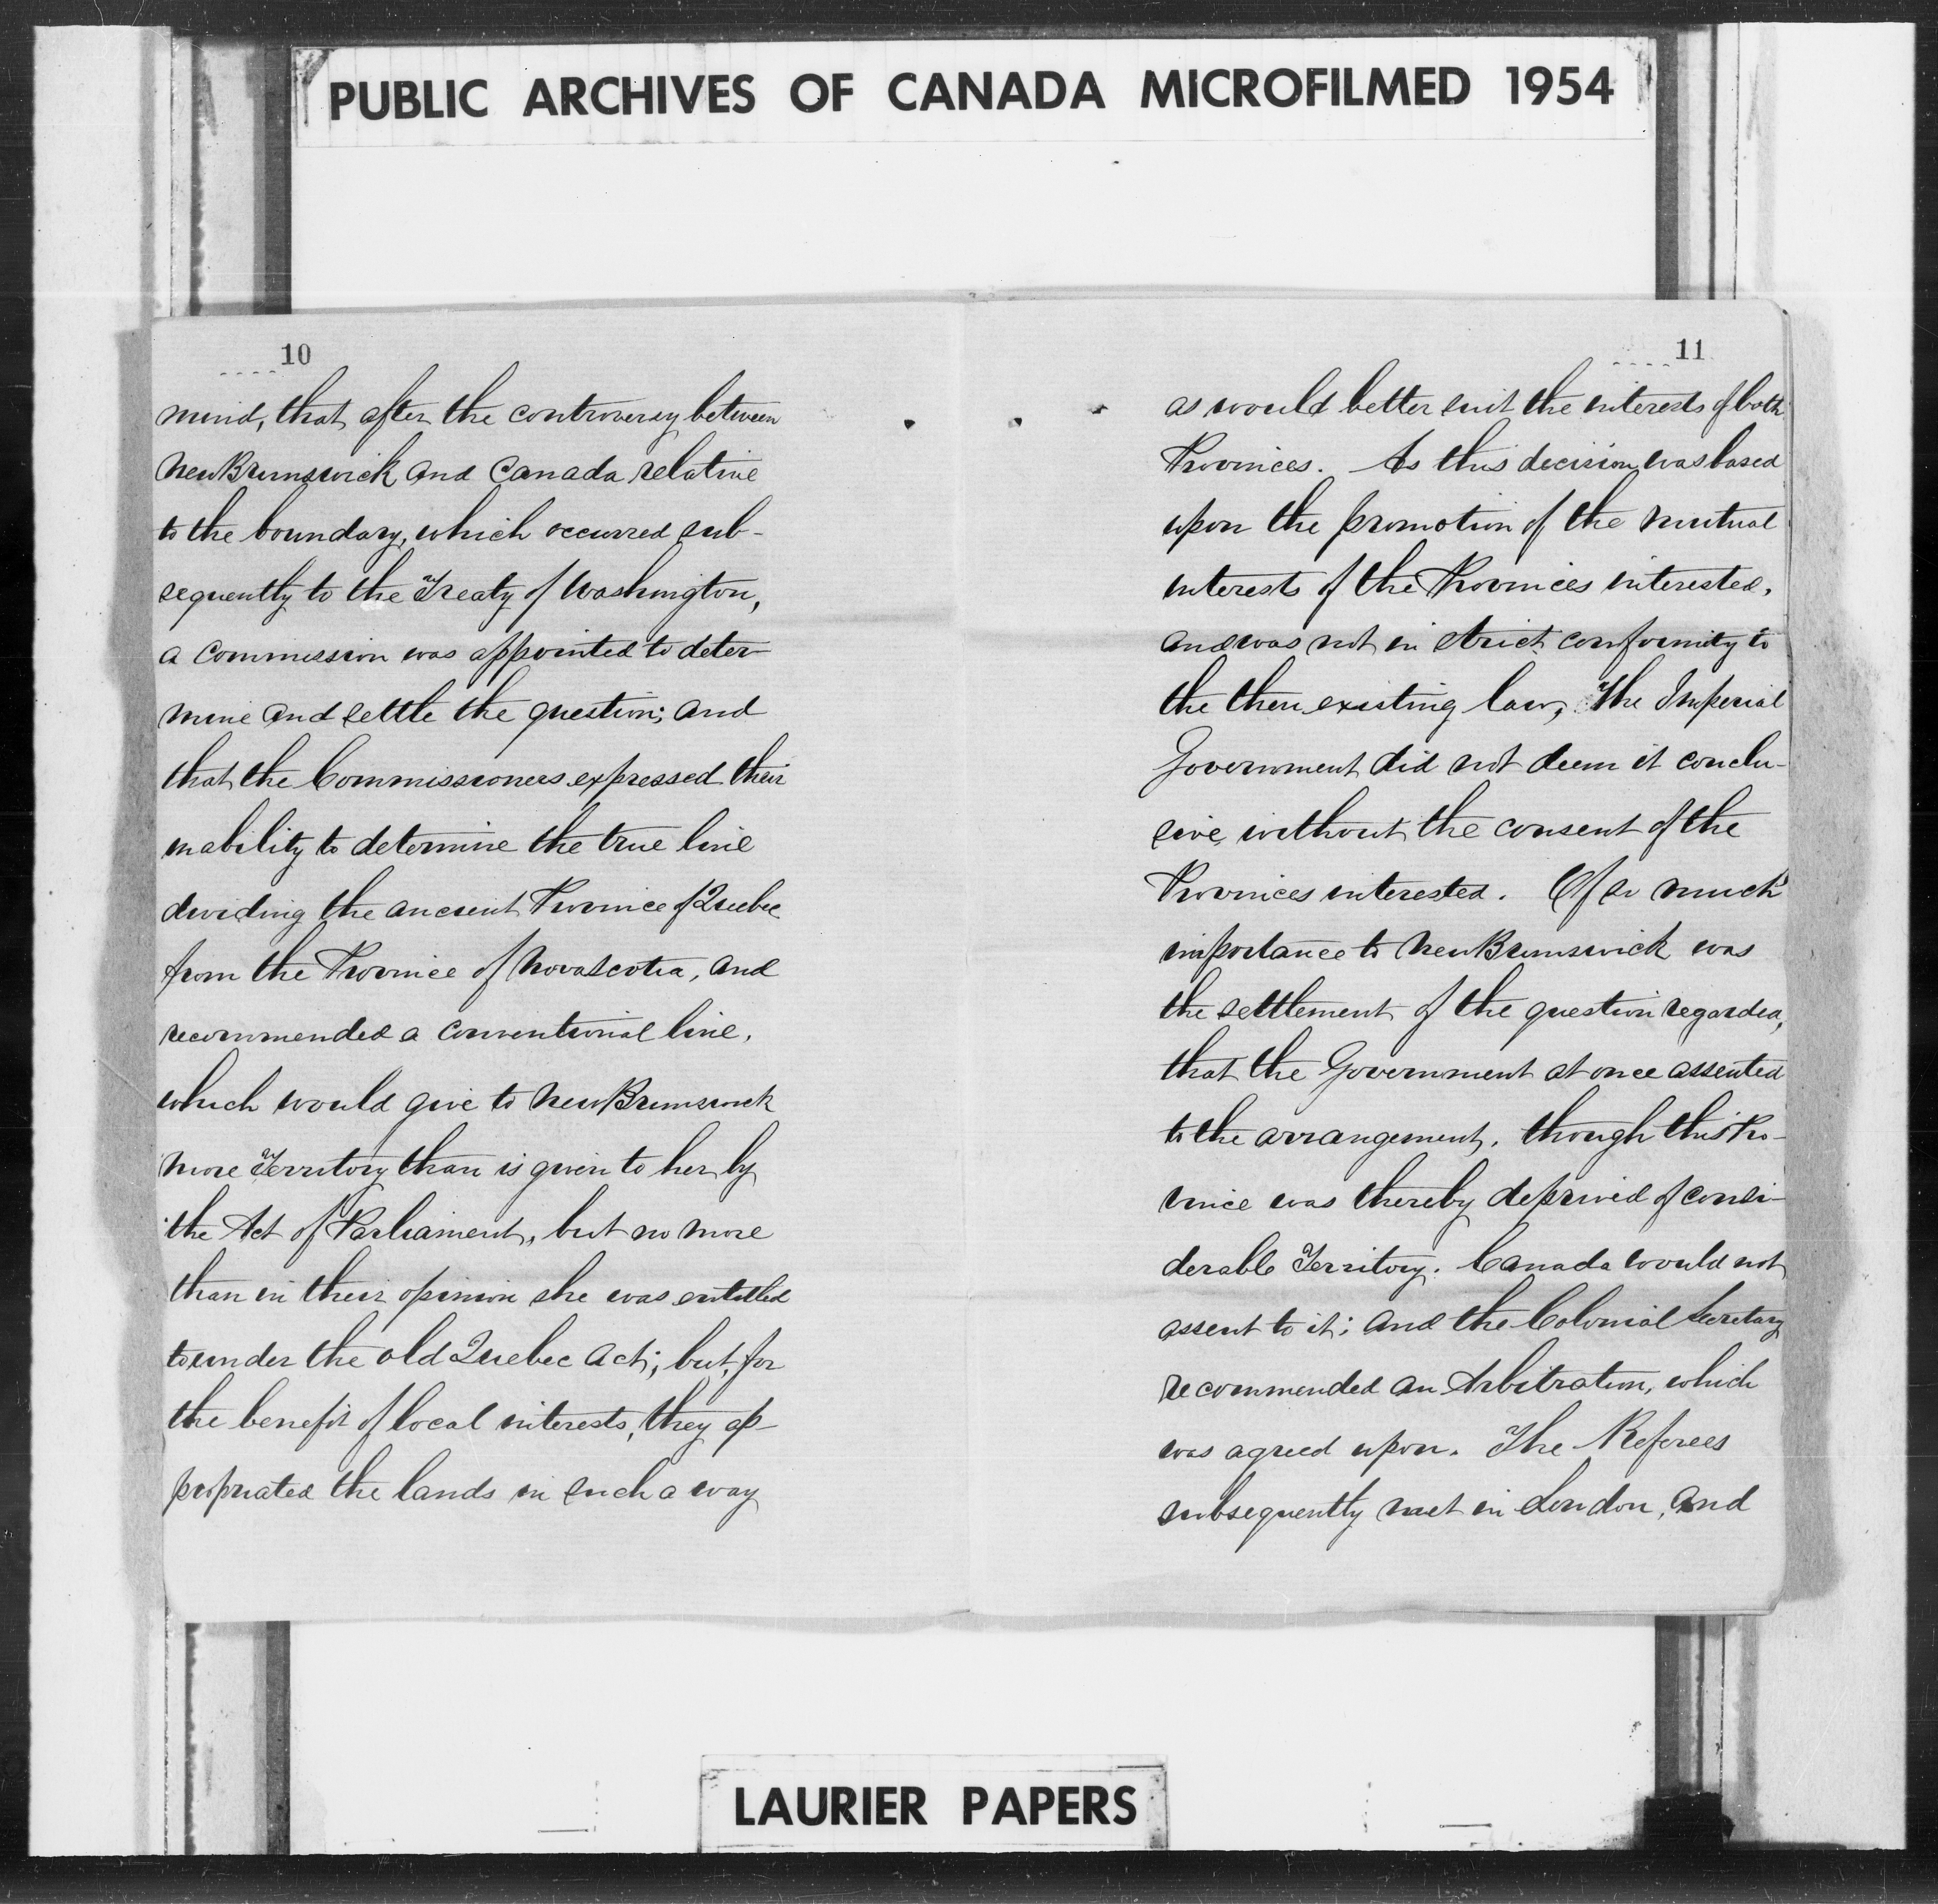 PUBLIC ARCHIVES OF CANADA MICROFILMED 1954
10
mind, that after the controversy between
New Brunswick and Canada relative
to the boundary, which occurred sub-
sequently to the Treaty of Washington,
a Commission was appointed to deter-
mine and settle the question; and
that the Commissioners expressed their
inability to determine the true line
dividing the ancient Province of Quebec
from the Province of Nova Scotia, and
recommended a conventional line,
which would give to New Brunswick
more Territory than is given to her by
the Act of Parliament, but no more
than in their opinion she was entitled
to under the old Quebec Act; but, for
the benefit of local interests, they ap-
propriated the lands in such a way
11
as would better suit the interests of both
Provinces. As this decision was based
upon the promotion of the mutual
interests of the Provinces interested,
and was not in strict conformity to
the then existing law, The Imperial
Government did not deem it conclu-
sive without the consent of the
Provinces interested. Of so much
importance to New Brunswick was
the settlement of the question regarded,
that the Government at once assented
to the arrangement, though this Pro-
vince was thereby deprived of consi-
derable Territory. Canada would not
assent to it; and the Colonial Secretary
recommended an Arbitration, which
was agreed upon. The Referees
subsequently met in London, and
LAURIER PAPERS